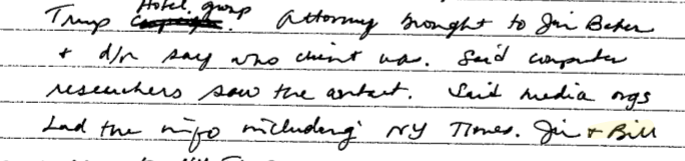 Hotel group
Trump Campaign. Attorney brought to Jim Baker
+ d/n say who client was. Said computer
researchers saw the contact. Said media orgs
had the info including NY Times. Jim + Bill